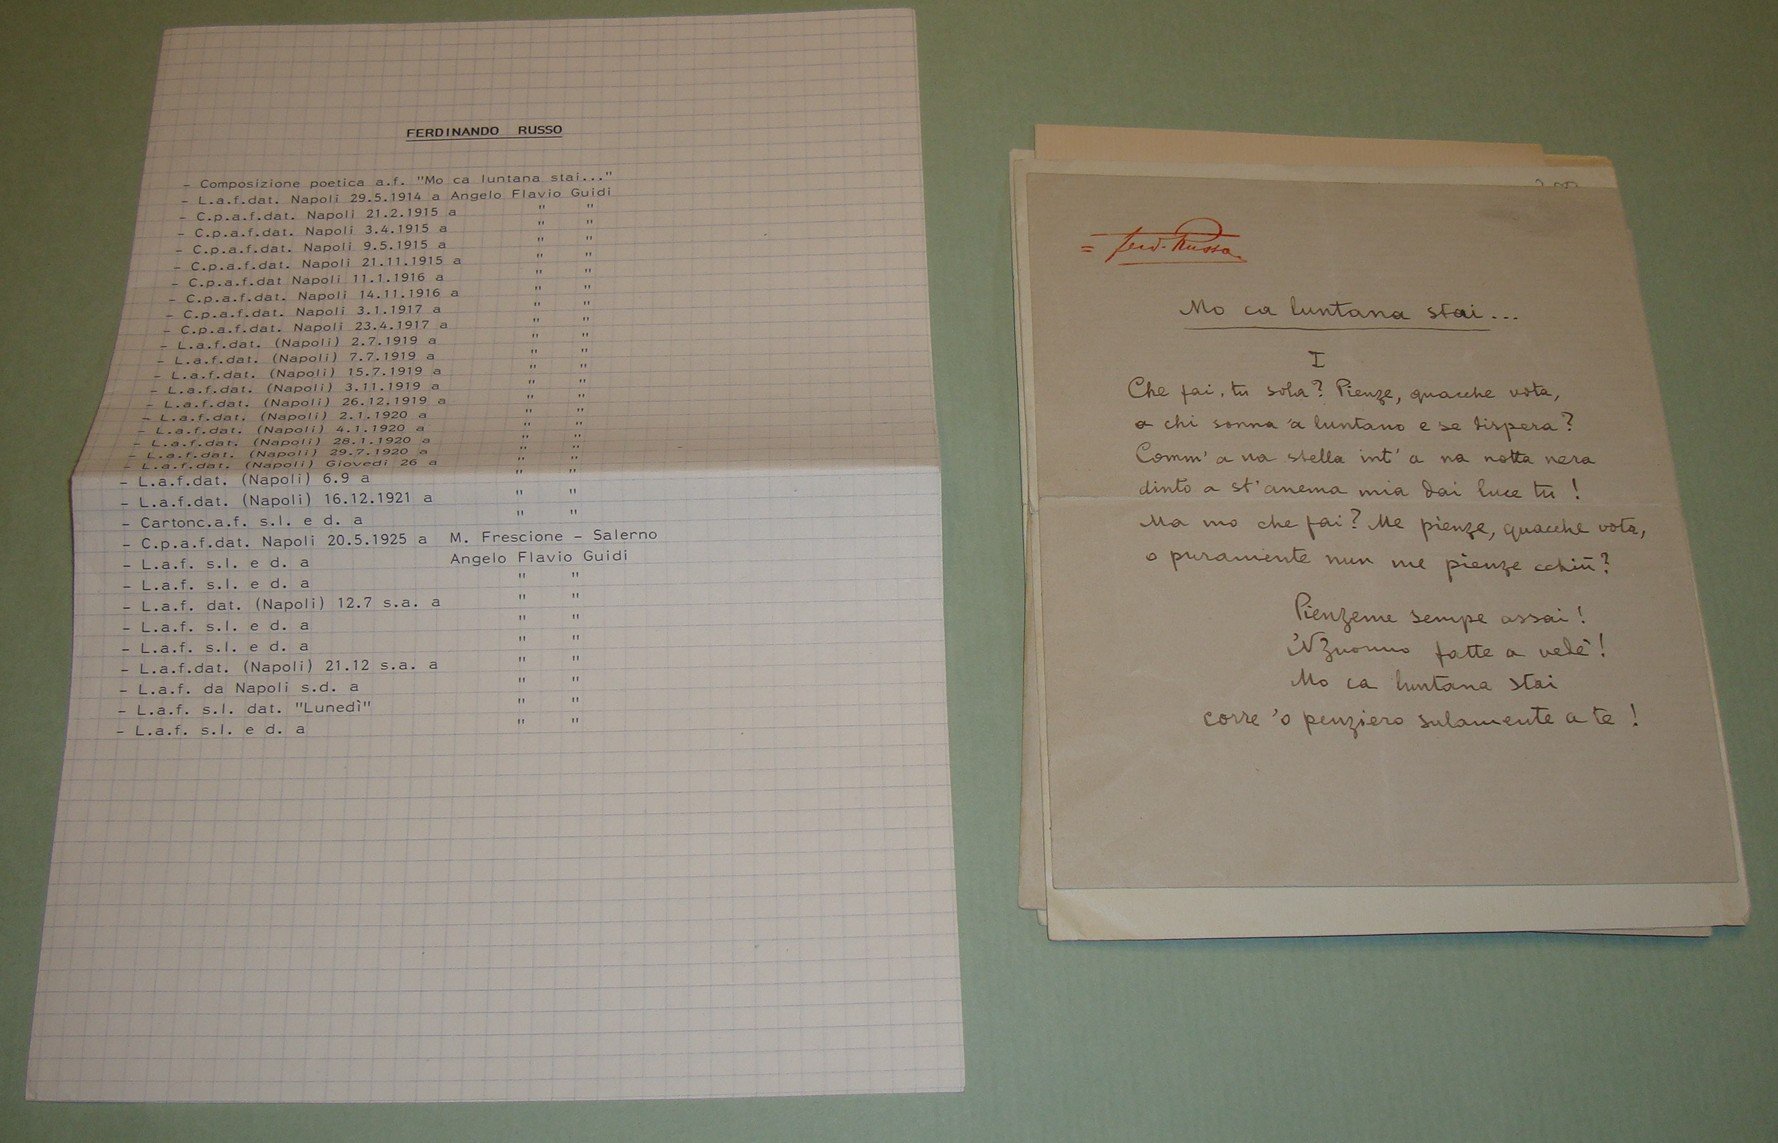 FERDINANDO RUSSO
- Composizione poetica a.f. "Mo ca luntana stai..."
- L.a.f.dat. Napoli 29.5.1914 a Angelo Flavio Guidi
- C.p.a.f.dat. Napoli 21.2.1915 a " "
- C.p.a.f.dat. Napoli 3.4.1915 a " "
- C.p.a.f.dat. Napoli 9.5.1915 a " "
- C.p.a.f.dat. Napoli 21.11.1915 a " "
- C.p.a.f.dat Napoli 11.1.1916 a " "
- C.p.a.f.dat. Napoli 14.11.1916 a " "
- C.p.a.f.dat. Napoli 3.1.1917 a " "
- C.p.a.f.dat. Napoli 23.4.1917 a " "
- L.a.f.dat. (Napoli) 2.7.1919 a " "
- L.a.f.dat. (Napoli) 7.7.1919 a " "
- L.a.f.dat. (Napoli) 15.7.1919 a " "
- L.a.f.dat. (Napoli) 3.11.1919 a " "
- L.a.f.dat. (Napoli) 26.12.1919 a " "
- L.a.f.dat. (Napoli) 2.1.1920 a " "
- L.a.f.dat. (Napoli) 4.1.1920 a " "
- L.a.f.dat. (Napoli) 28.1.1920 a " "
- L.a.f.dat. (Napoli) 29.7.1920 a " "
- L.a.f.dat. (Napoli) Giovedì 26 a " "
- L.a.f.dat. (Napoli) 6.9 a " "
- L.a.f.dat. (Napoli) 16.12.1921 a " "
- Cartonc.a.f. s.l. e d. a " "
- C.p.a.f.dat. Napoli 20.5.1925 a M. Frescione - Salerno
- L.a.f. s.l. e d. a Angelo Flavio Guidi
- L.a.f. s.l. e d. a " "
- L.a.f. dat. (Napoli) 12.7 s.a. a " "
- L.a.f. s.l. e d. a " "
- L.a.f. s.l. e d. a " "
- L.a.f.dat. (Napoli) 21.12 s.a. a " "
- L.a.f. da Napoli s.d. a " "
- L.a.f. s.l. dat. "Lunedì" " "
- L.a.f. s.l. e d. a " "
= Ferd. Russo
Mo ca luntana stai...
I
Che fai, tu sola? Pienze, quacche vota,
a chi sonna 'a luntano e se dispera?
Comm' a na stella int' a na notta nera
dinto a st'anema mia dai luce tu!
Ma mo che fai? Me pienze, quacche vota,
o puramente nun me pienze cchiù?
Pienzeme sempe assai!
'Nzuonno fatte a vedè!
Mo ca luntana stai
corre 'o penziero sulamente a te!